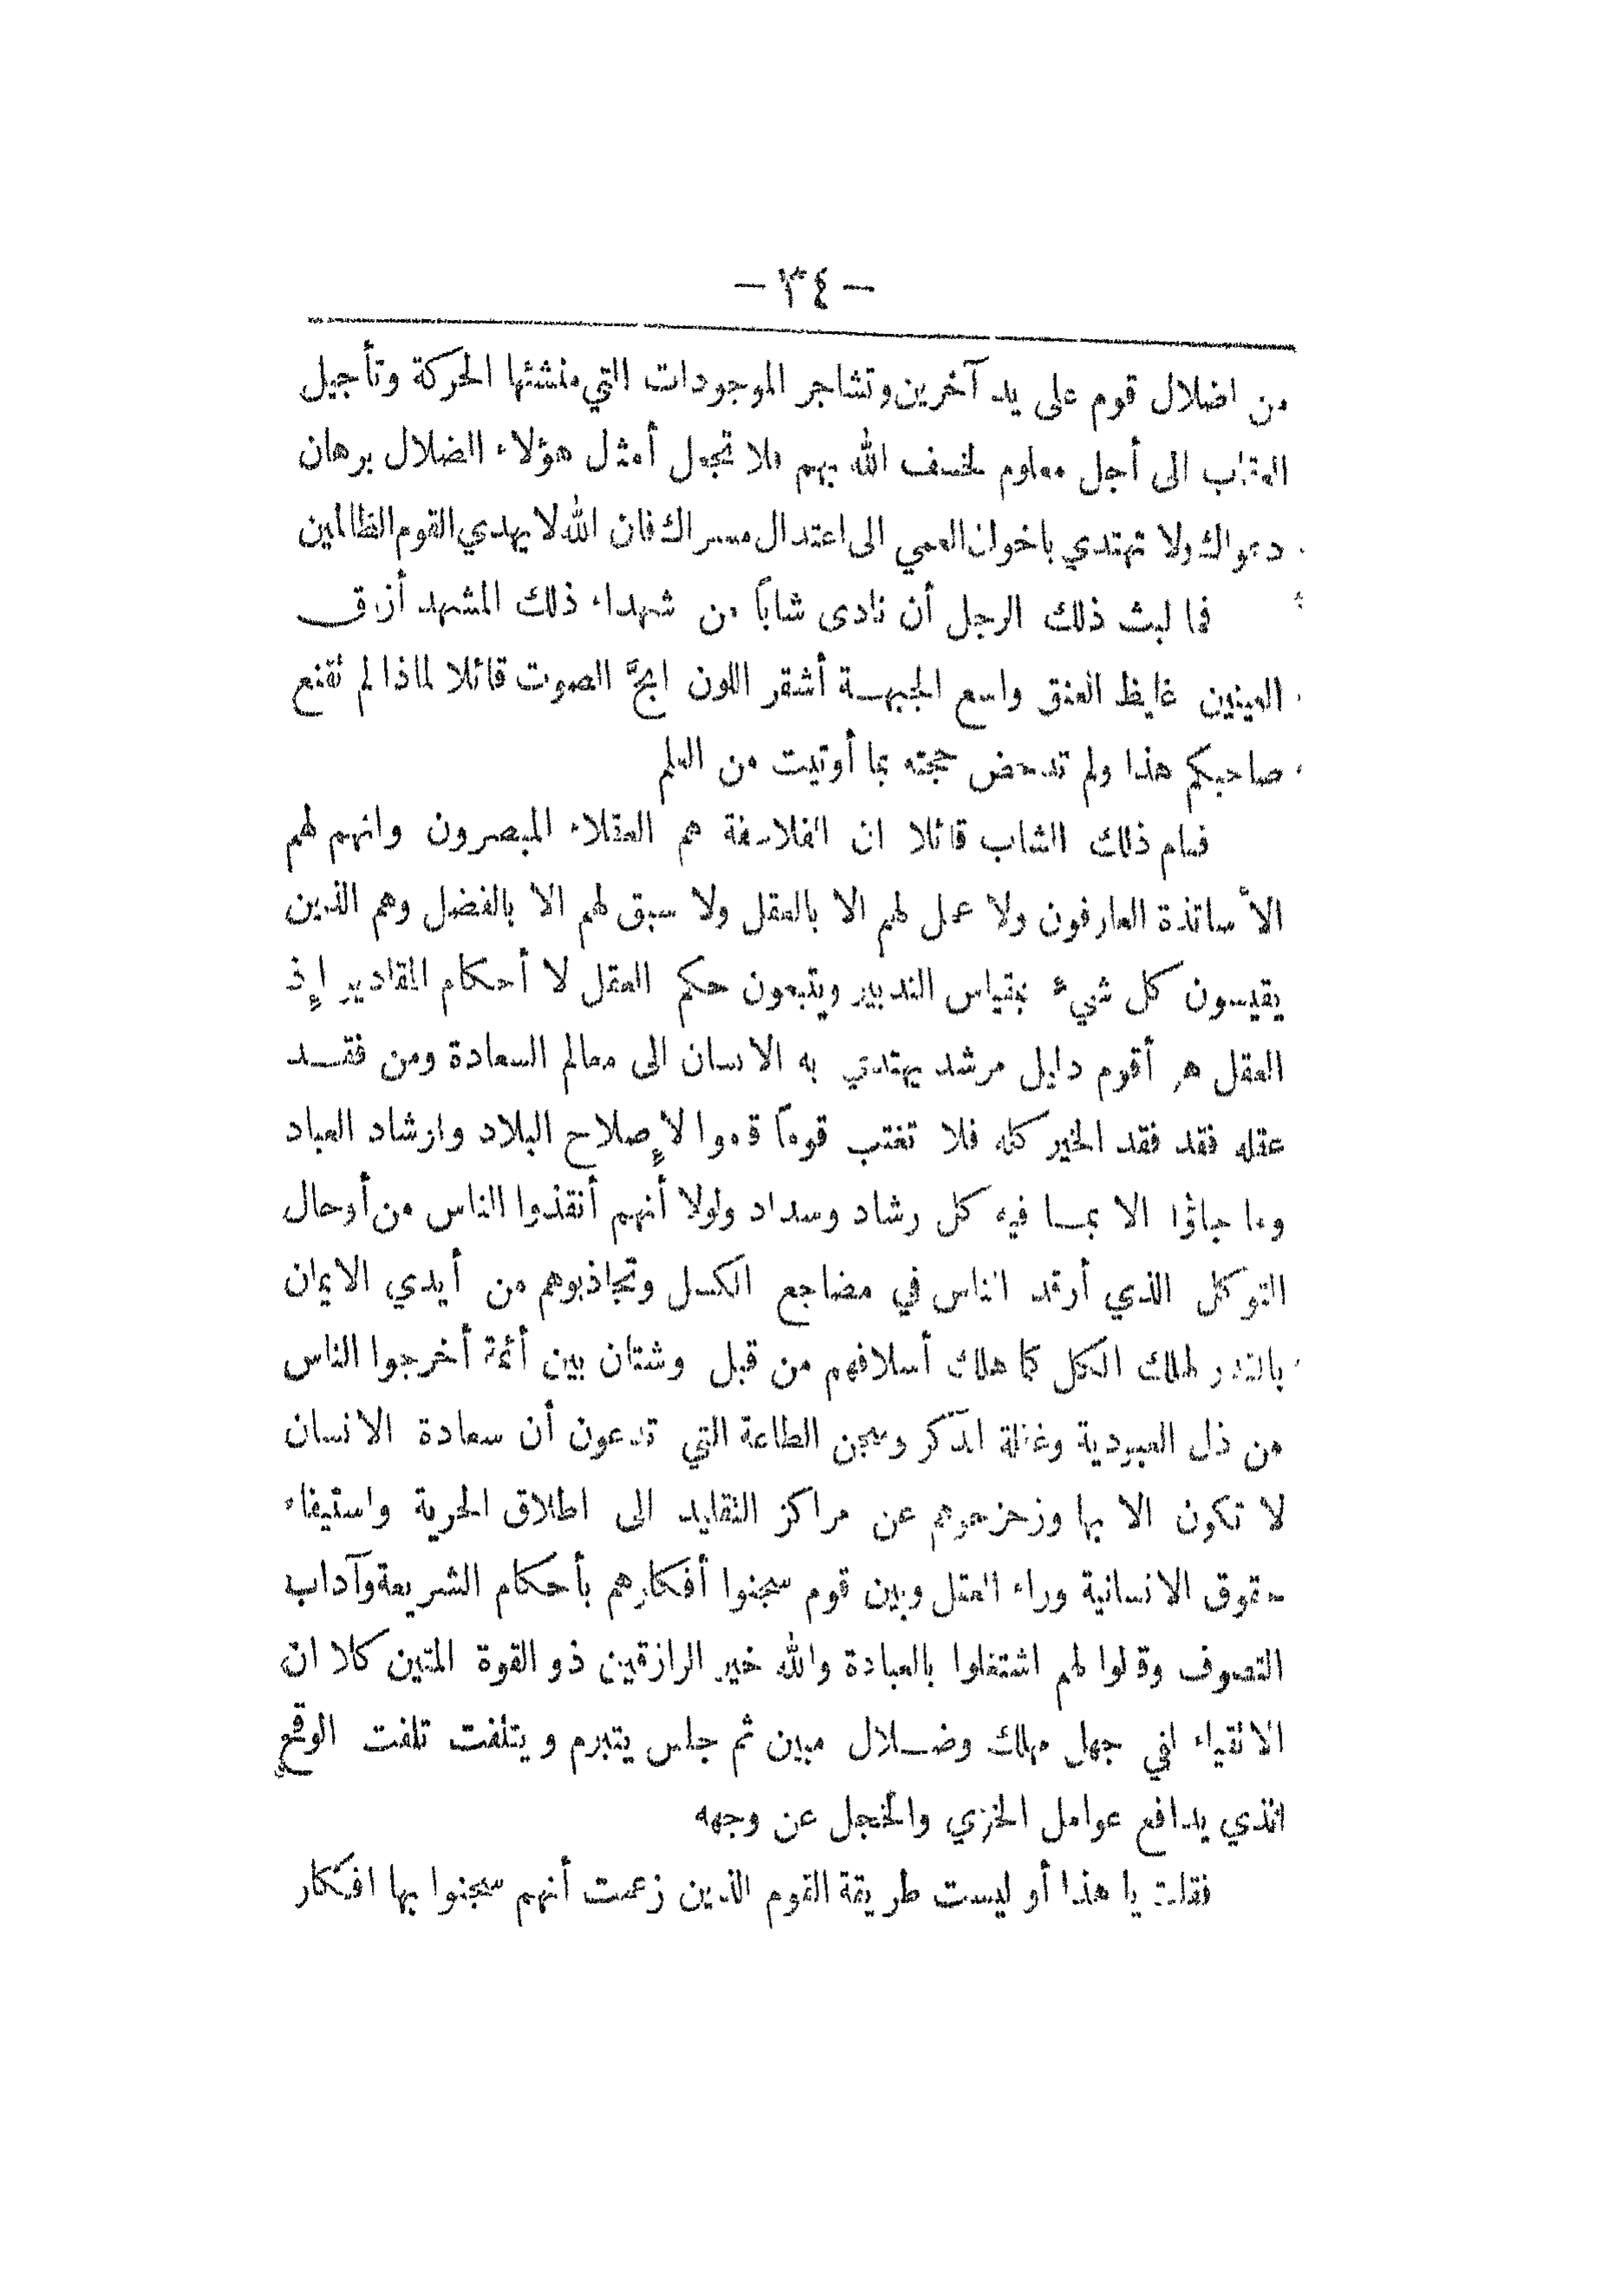 — ٣٤ —
من اضلال قوم على يد آخرين وتشاجر الموجودات التي منشئها الحركة وتأجيل
العقاب الى أجل معلوم لخسف الله بهم فلا تجعل أمثل هؤلاء الضلال برهان
دعواك ولا تهتدي باخوان العمي الى اعتدال مسراك فان الله لا يهدي القوم الظالمين
فما لبث ذلك الرجل أن نادى شاباً من شهداء ذلك المشهد أزرق
العينين غليظ العنق واسع الجبهة أشقر اللون ابحَّ الصوت قائلا لماذا لم تقنع
صاحبكم هذا ولم تدحض حجته بما أوتيت من العلم
فقام ذلك الشاب قائلا ان الفلاسفة هم العقلاء المبصرون وانهم لهم
الأساتذة العارفون ولا عمل لهم الا بالعقل ولا سبق لهم الا بالفضل وهم الذين
يقيسون كل شيء بمقياس التدبير ويتبعون حكم العقل لا أحكام المقادير إذ
العقل هو أقوم دليل مرشد يهتدي به الانسان الى معالم السعادة ومن فقد
عقله فقد فقد الخير كله فلا تغتب قوماً قاموا لإصلاح البلاد وارشاد العباد
وما جاؤا الا بما فيه كل رشاد وسداد ولولا أنهم أنقذوا الناس من أوحال
التوكل الذي أرقد الناس في مضاجع الكسل وتجاذبوهم من أيدي الايمان
بالقدر لهلك الكل كما هلك أسلافهم من قبل وشتان بين أئمة أخرجوا الناس
من ذل العبودية وغفلة الذكر وسجن الطاعة التي تدعون أن سعادة الانسان
لا تكون الا بها وزحزحوهم عن مراكز التقليد الى اطلاق الحرية واستيفاء
حقوق الانسانية وراء العقل وبين قوم سجنوا أفكارهم بأحكام الشريعة وآداب
التصوف وقالوا لهم اشتغلوا بالعبادة والله خير الرازقين ذو القوة المتين كلا ان
الاتقياء لفي جهل مهلك وضلال مبين ثم جلس يتبرم ويتلفت تلفت الوقح
الذي يدافع عوامل الخزي والخجل عن وجهه
فقلت يا هذا أو ليست طريقة القوم الذين زعمت أنهم سجنوا بها افكار